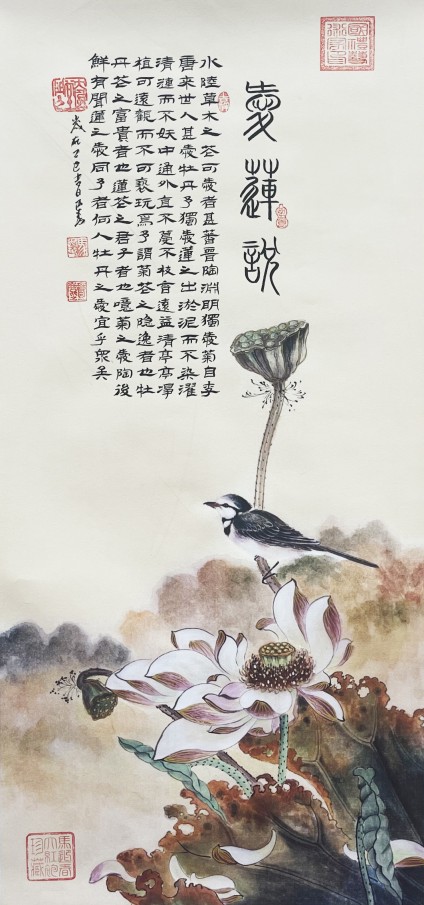 愛蓮說
水陸草木之花可愛者甚蕃晉陶淵明獨愛菊自李
唐來世人甚愛牡丹予獨愛蓮之出淤泥而不染濯
清漣而不妖中通外直不蔓不枝香遠益清亭亭淨
植可遠觀而不可褻玩焉予謂菊花之隱逸者也牡
丹花之富貴者也蓮花之君子者也噫菊之愛陶後
鮮有聞蓮之愛同予者何人牡丹之愛宜乎眾矣
歲在丁巳
大紅袍
珍藏